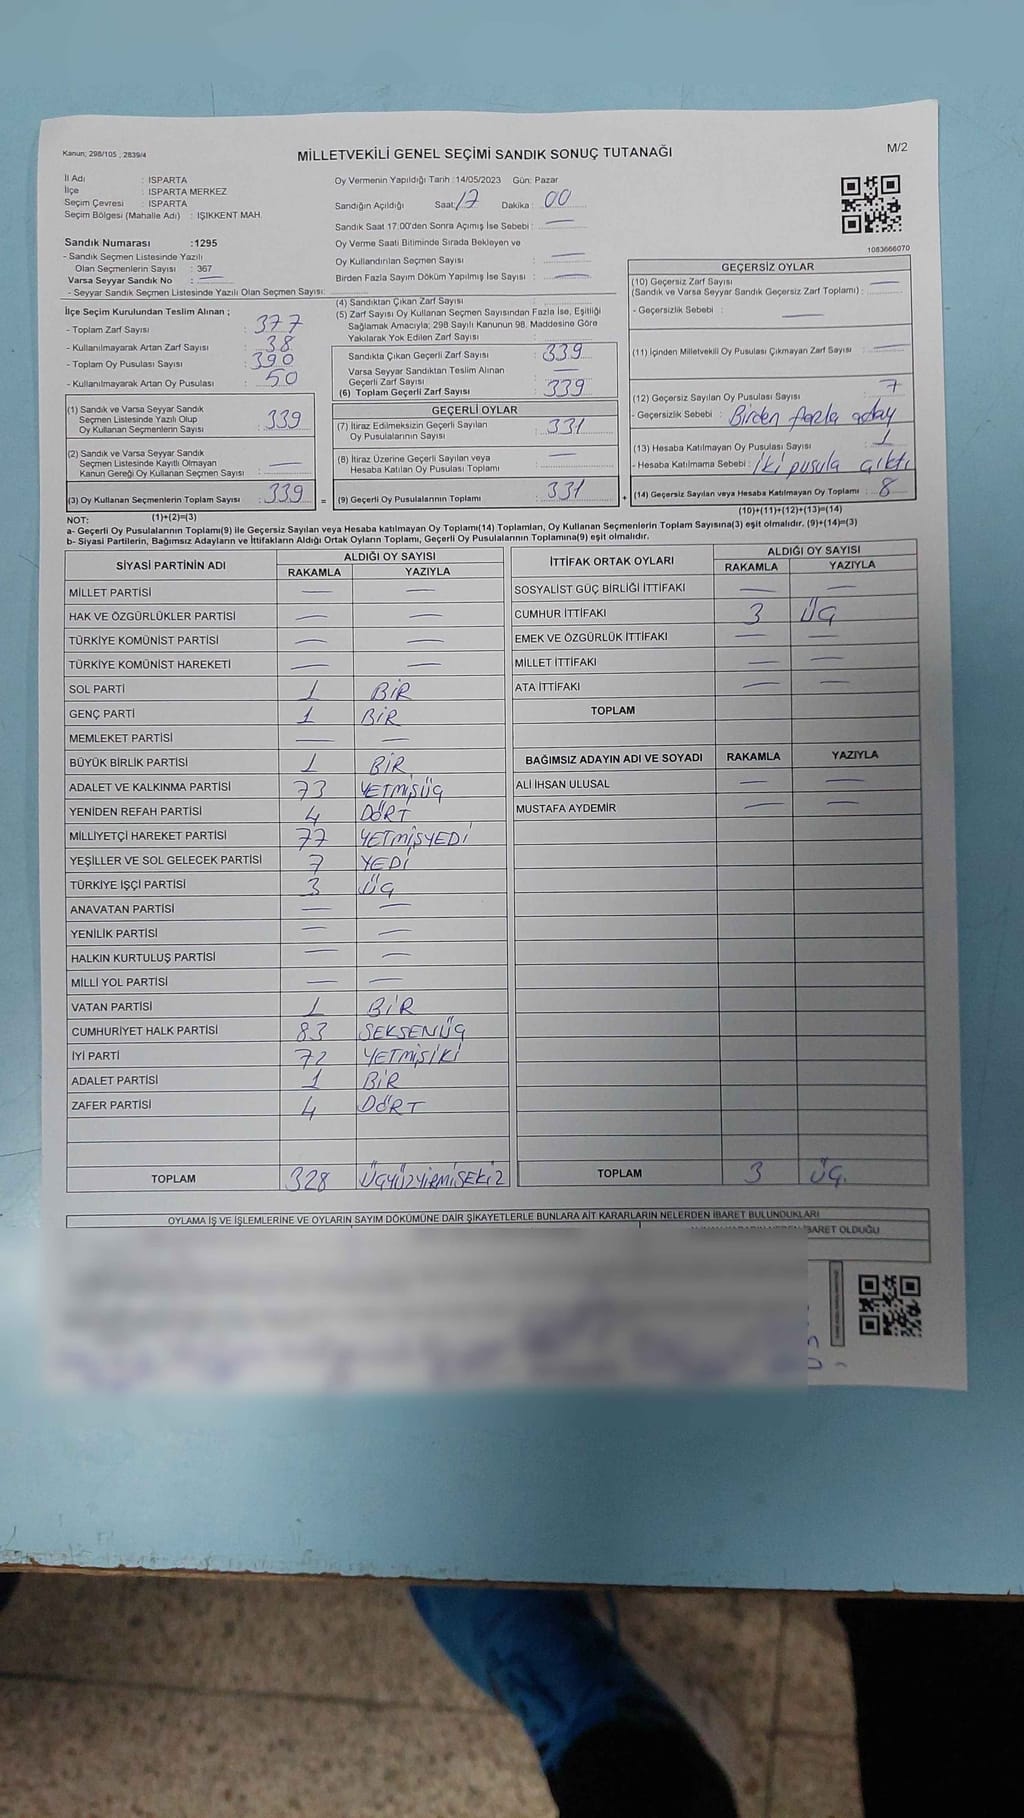 Kanun; 298/105 , 2839/4
MİLLETVEKİLİ GENEL SEÇİMİ SANDIK SONUÇ TUTANAĞI
M/2
İl Adı : ISPARTA
İlçe : ISPARTA MERKEZ
Seçim Çevresi : ISPARTA
Seçim Bölgesi (Mahalle Adı) : IŞIKKENT MAH.
Sandık Numarası :1295
- Sandık Seçmen Listesinde Yazılı
Olan Seçmenlerin Sayısı : 367
Varsa Seyyar Sandık No : —
- Seyyar Sandık Seçmen Listesinde Yazılı Olan Seçmen Sayısı:
Oy Vermenin Yapıldığı Tarih :14/05/2023 Gün: Pazar
Sandığın Açıldığı Saat: 17 Dakika : 00
Sandık Saat 17:00'den Sonra Açımış İse Sebebi : —
Oy Verme Saati Bitiminde Sırada Bekleyen ve
Oy Kullandırılan Seçmen Sayısı : —
Birden Fazla Sayım Döküm Yapılmış İse Sayısı : —
1083666070
İlçe Seçim Kurulundan Teslim Alınan ;
- Toplam Zarf Sayısı : 377
- Kullanılmayarak Artan Zarf Sayısı : 38
- Toplam Oy Pusulası Sayısı : 390
- Kullanılmayarak Artan Oy Pusulası : 50
(1) Sandık ve Varsa Seyyar Sandık
Seçmen Listesinde Yazılı Olup
Oy Kullanan Seçmenlerin Sayısı : 339
(2) Sandık ve Varsa Seyyar Sandık
Seçmen Listesinde Kayıtlı Olmayan
Kanun Gereği Oy Kullanan Seçmen Sayısı : —
(3) Oy Kullanan Seçmenlerin Toplam Sayısı : 339 =
(1)+(2)=(3)
(4) Sandıktan Çıkan Zarf Sayısı :
(5) Zarf Sayısı Oy Kullanan Seçmen Sayısından Fazla İse, Eşitliği
Sağlamak Amacıyla; 298 Sayılı Kanunun 98. Maddesine Göre
Yakılarak Yok Edilen Zarf Sayısı :
Sandıkta Çıkan Geçerli Zarf Sayısı : 339
Varsa Seyyar Sandıktan Teslim Alınan
Geçerli Zarf Sayısı : —
(6) Toplam Geçerli Zarf Sayısı : 339
GEÇERLİ OYLAR
(7) İtiraz Edilmeksizin Geçerli Sayılan
Oy Pusulasının Sayısı : 331
(8) İtiraz Üzerine Geçerli Sayılan veya
Hesaba Katılan Oy Pusulası Toplamı : —
(9) Geçerli Oy Pusulalarının Toplamı : 331 +
GEÇERSİZ OYLAR
(10) Geçersiz Zarf Sayısı
(Sandık ve Varsa Seyyar Sandık Geçersiz Zarf Toplamı) : —
- Geçersizlik Sebebi : —
(11) İçinden Milletvekili Oy Pusulası Çıkmayan Zarf Sayısı : —
(12) Geçersiz Sayılan Oy Pusulası Sayısı : 7
- Geçersizlik Sebebi : Birden fazla aday
(13) Hesaba Katılmayan Oy Pusulası Sayısı : 1
- Hesaba Katılmama Sebebi : İki pusula çıktı
(14) Geçersiz Sayılan veya Hesaba Katılmayan Oy Toplamı : 8
(10)+(11)+(12)+(13)=(14)
NOT:
a- Geçerli Oy Pusulalarının Toplamı(9) ile Geçersiz Sayılan veya Hesaba katılmayan Oy Toplamı(14) Toplamları, Oy Kullanan Seçmenlerin Toplam Sayısına(3) eşit olmalıdır. (9)+(14)=(3)
b- Siyasi Partilerin, Bağımsız Adayların ve İttifakların Aldığı Ortak Oyların Toplamı, Geçerli Oy Pusulalarının Toplamına(9) eşit olmalıdır.
SİYASİ PARTİNİN ADI ALDIĞI OY SAYISI
RAKAMLA YAZIYLA
MİLLET PARTİSİ — —
HAK VE ÖZGÜRLÜKLER PARTİSİ — —
TÜRKİYE KOMÜNİST PARTİSİ — —
TÜRKİYE KOMÜNİST HAREKETİ — —
SOL PARTİ 1 BİR
GENÇ PARTİ 1 BİR
MEMLEKET PARTİSİ — —
BÜYÜK BİRLİK PARTİSİ 1 BİR
ADALET VE KALKINMA PARTİSİ 73 YETMİŞÜÇ
YENİDEN REFAH PARTİSİ 4 DÖRT
MİLLİYETÇİ HAREKET PARTİSİ 77 YETMİŞYEDİ
YEŞİLLER VE SOL GELECEK PARTİSİ 7 YEDİ
TÜRKİYE İŞÇİ PARTİSİ 3 ÜÇ
ANAVATAN PARTİSİ — —
YENİLİK PARTİSİ — —
HALKIN KURTULUŞ PARTİSİ — —
MİLLİ YOL PARTİSİ — —
VATAN PARTİSİ 1 BİR
CUMHURİYET HALK PARTİSİ 83 SEKSENÜÇ
İYİ PARTİ 72 YETMİŞİKİ
ADALET PARTİSİ 1 BİR
ZAFER PARTİSİ 4 DÖRT
TOPLAM 328 ÜÇYÜZYİRMİSEKİZ
İTTİFAK ORTAK OYLARI ALDIĞI OY SAYISI
RAKAMLA YAZIYLA
SOSYALİST GÜÇ BİRLİĞİ İTTİFAKI — —
CUMHUR İTTİFAKI 3 ÜÇ
EMEK VE ÖZGÜRLÜK İTTİFAKI — —
MİLLET İTTİFAKI — —
ATA İTTİFAKI — —
TOPLAM
BAĞIMSIZ ADAYIN ADI VE SOYADI RAKAMLA YAZIYLA
ALİ İHSAN ULUSAL — —
MUSTAFA AYDEMİR — —
TOPLAM 3 ÜÇ.
OYLAMA İŞ VE İŞLEMLERİNE VE OYLARIN SAYIM DÖKÜMÜNE DAİR ŞİKAYETLERLE BUNLARA AİT KARARLARIN NELERDEN İBARET BULUNDUKLARI
İBARET OLDUĞU